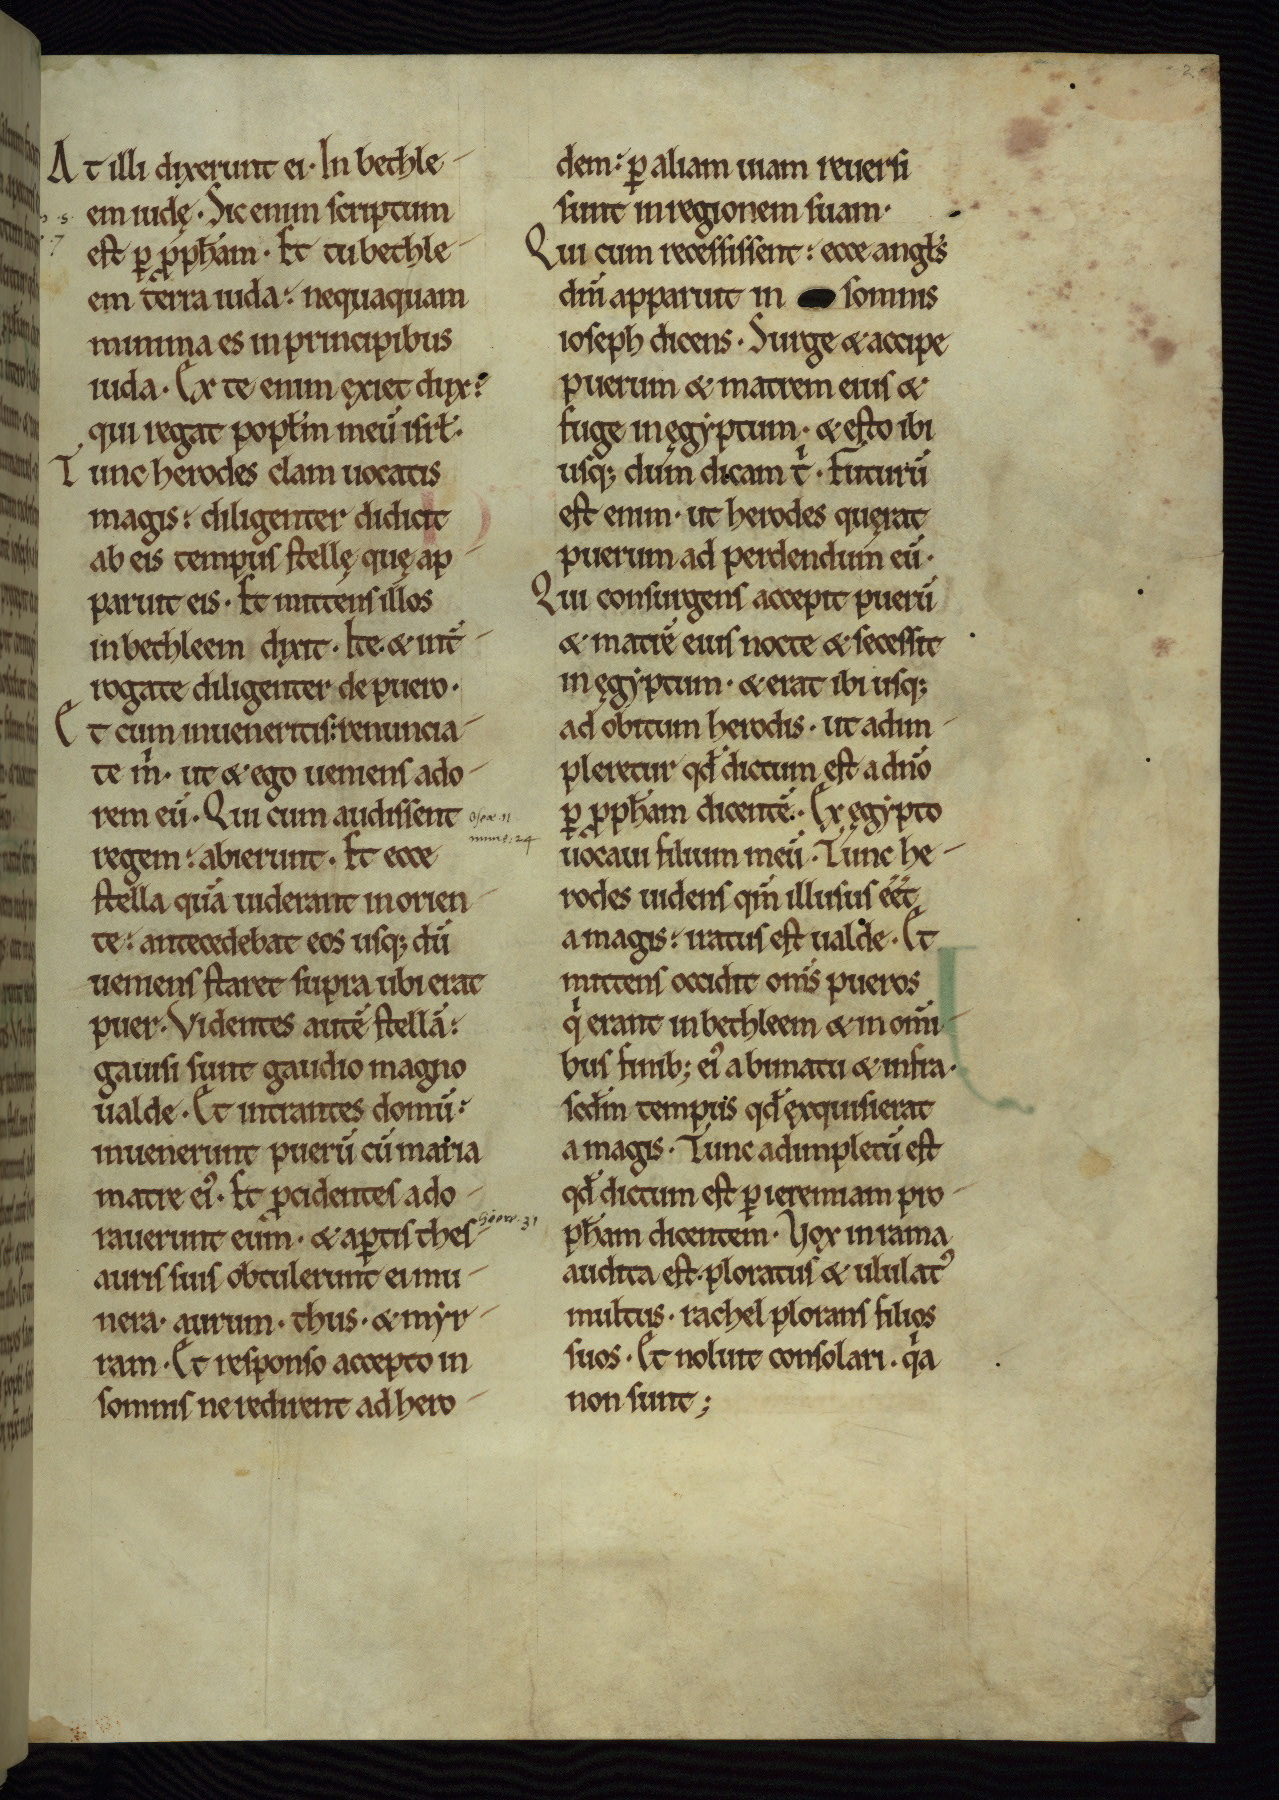 2
At illi dixerunt ei· In bethle-
em iudę· Sic enim scriptum
est ꝑ ꝓph̄am· Et tu bethle-
em terra iuda: nequaquam
minima es in principibus
iuda· Ex te enim exiet dux:
qui regat popłm meū isrł·
Tunc herodes clam uocatis
magis: diligenter didicit
ab eis tempus stellę quę ap-
paruit eis· Et mittens illos
in bethleem dixit· Ite· & int̄-
rogate diligenter de puero·
Et cum inueneritis: renuncia-
te m̍· ut & ego ueniens ado-
rem eū· Qui cum audissent
regem: abierunt· Et ecce
stella quā uiderant in orien-
te: antecedebat eos usq; dū
ueniens staret supra ubi erat
puer· Videntes autē stellā:
gauisi sunt gaudio magno
ualde· Et intrantes domū:
inuenerunt puerū cū maria
matre ei᾽· Et ꝓcidentes ado-
rauerunt eum· & aꝑtis thes-
auris suis obtulerunt ei mu-
nera· aurum· thus· & myr-
ram· Et responso accepto in
somnis ne redirent ad hero-
osee· 11
nume· 24
Hiere· 31
dem: ꝑ aliam uiam reuersi
sunt in regionem suam·
Qui cum recessissent: ecce angłs
dn̄i apparuit in somnis
ioseph dicens· Surge & accipe
puerum & matrem eius &
fuge in ęgyptum· & esto ibi
usq; dum dicam t̍· Futurū
est enim· ut herodes quęrat
puerum ad perdendum eū·
Qui consurgens accepit puerū
& matrē eius nocte & secessit
in ęgyptum· & erat ibi usq;
ad obitum herodis· ut adim-
pleretur qd̄ dictum est a dn̄o
ꝑ ꝓph̄am dicentē· Ex ęgypto
uocaui filium meū· Tunc he-
rodes uidens qm̄ illusus eēt
a magis: iratus est ualde· Et
mittens occidit om̄s pueros
q̍ erant in bethleem & in omī-
bus finib; ei᾽ a bimatu & infra·
scd̄m tempus qd̄ exquisierat
a magis· Tunc adimpletū est
qd̄ dictum est ꝑ ieremiam pro-
ph̄am dicentem· Vox in rama
audita est· ploratus & ululat᾽
multus· rachel plorans filios
suos· Et noluit consolari· q̍a
non sunt;